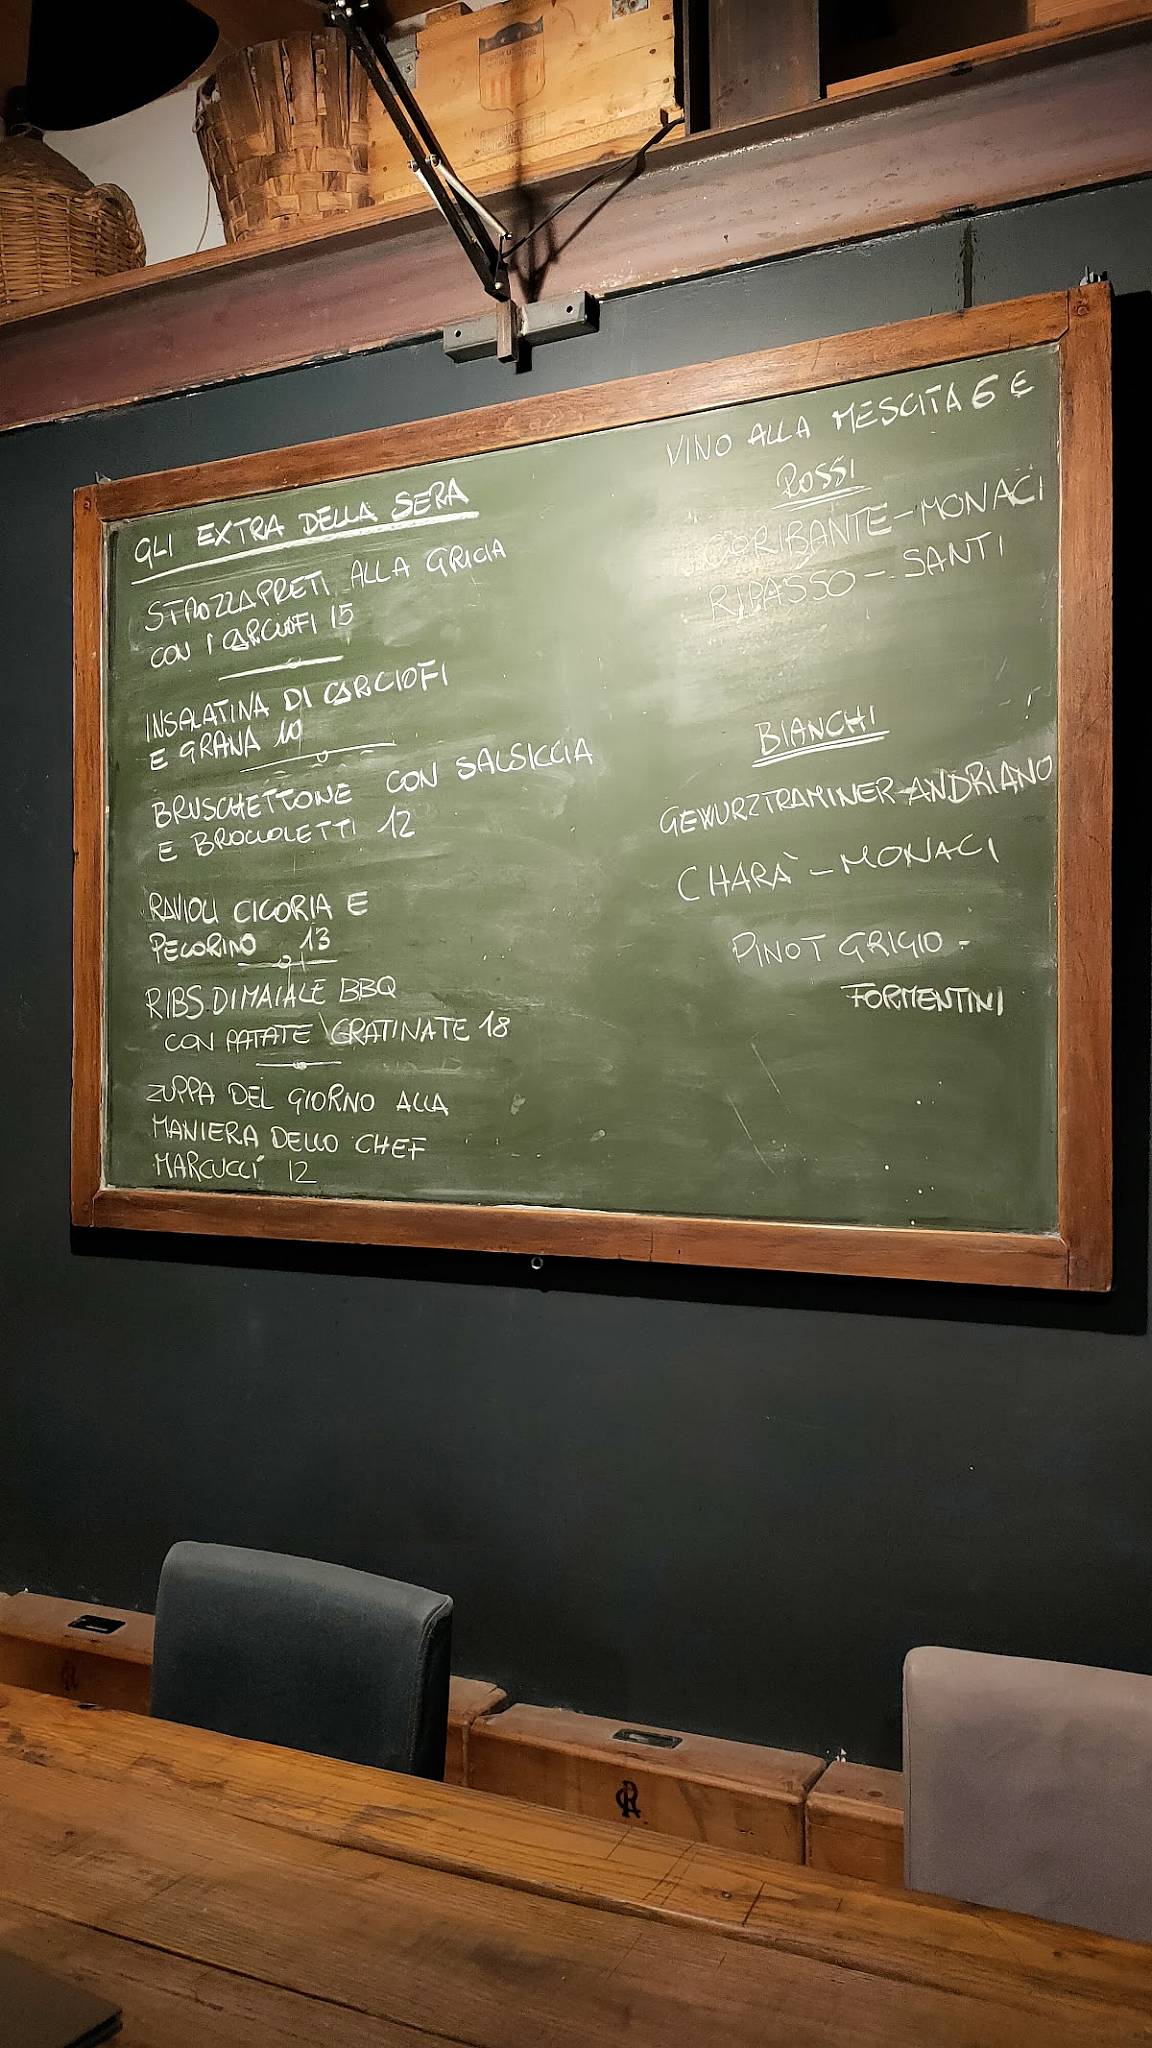 GLI EXTRA DELLA SERA
STROZZAPRETI ALLA GRICIA
CON I CARCIOFI 15
INSALATINA DI CARCIOFI
E GRANA 10
BRUSCHETTONE CON SALSICCIA
E BROCCOLETTI 12
RAVIOLI CICORIA E
PECORINO 13
RIBS DI MAIALE BBQ
CON PATATE GRATINATE 18
ZUPPA DEL GIORNO ALLA
MANIERA DELLO CHEF
MARCUCCI 12
VINO ALLA MESCITA 6 €
ROSSI
CORIBANTE - MONACI
RIPASSO - SANTI
BIANCHI
GEWURZTRAMINER - ANDRIANO
CHARÀ - MONACI
PINOT GRIGIO -
FORMENTINI